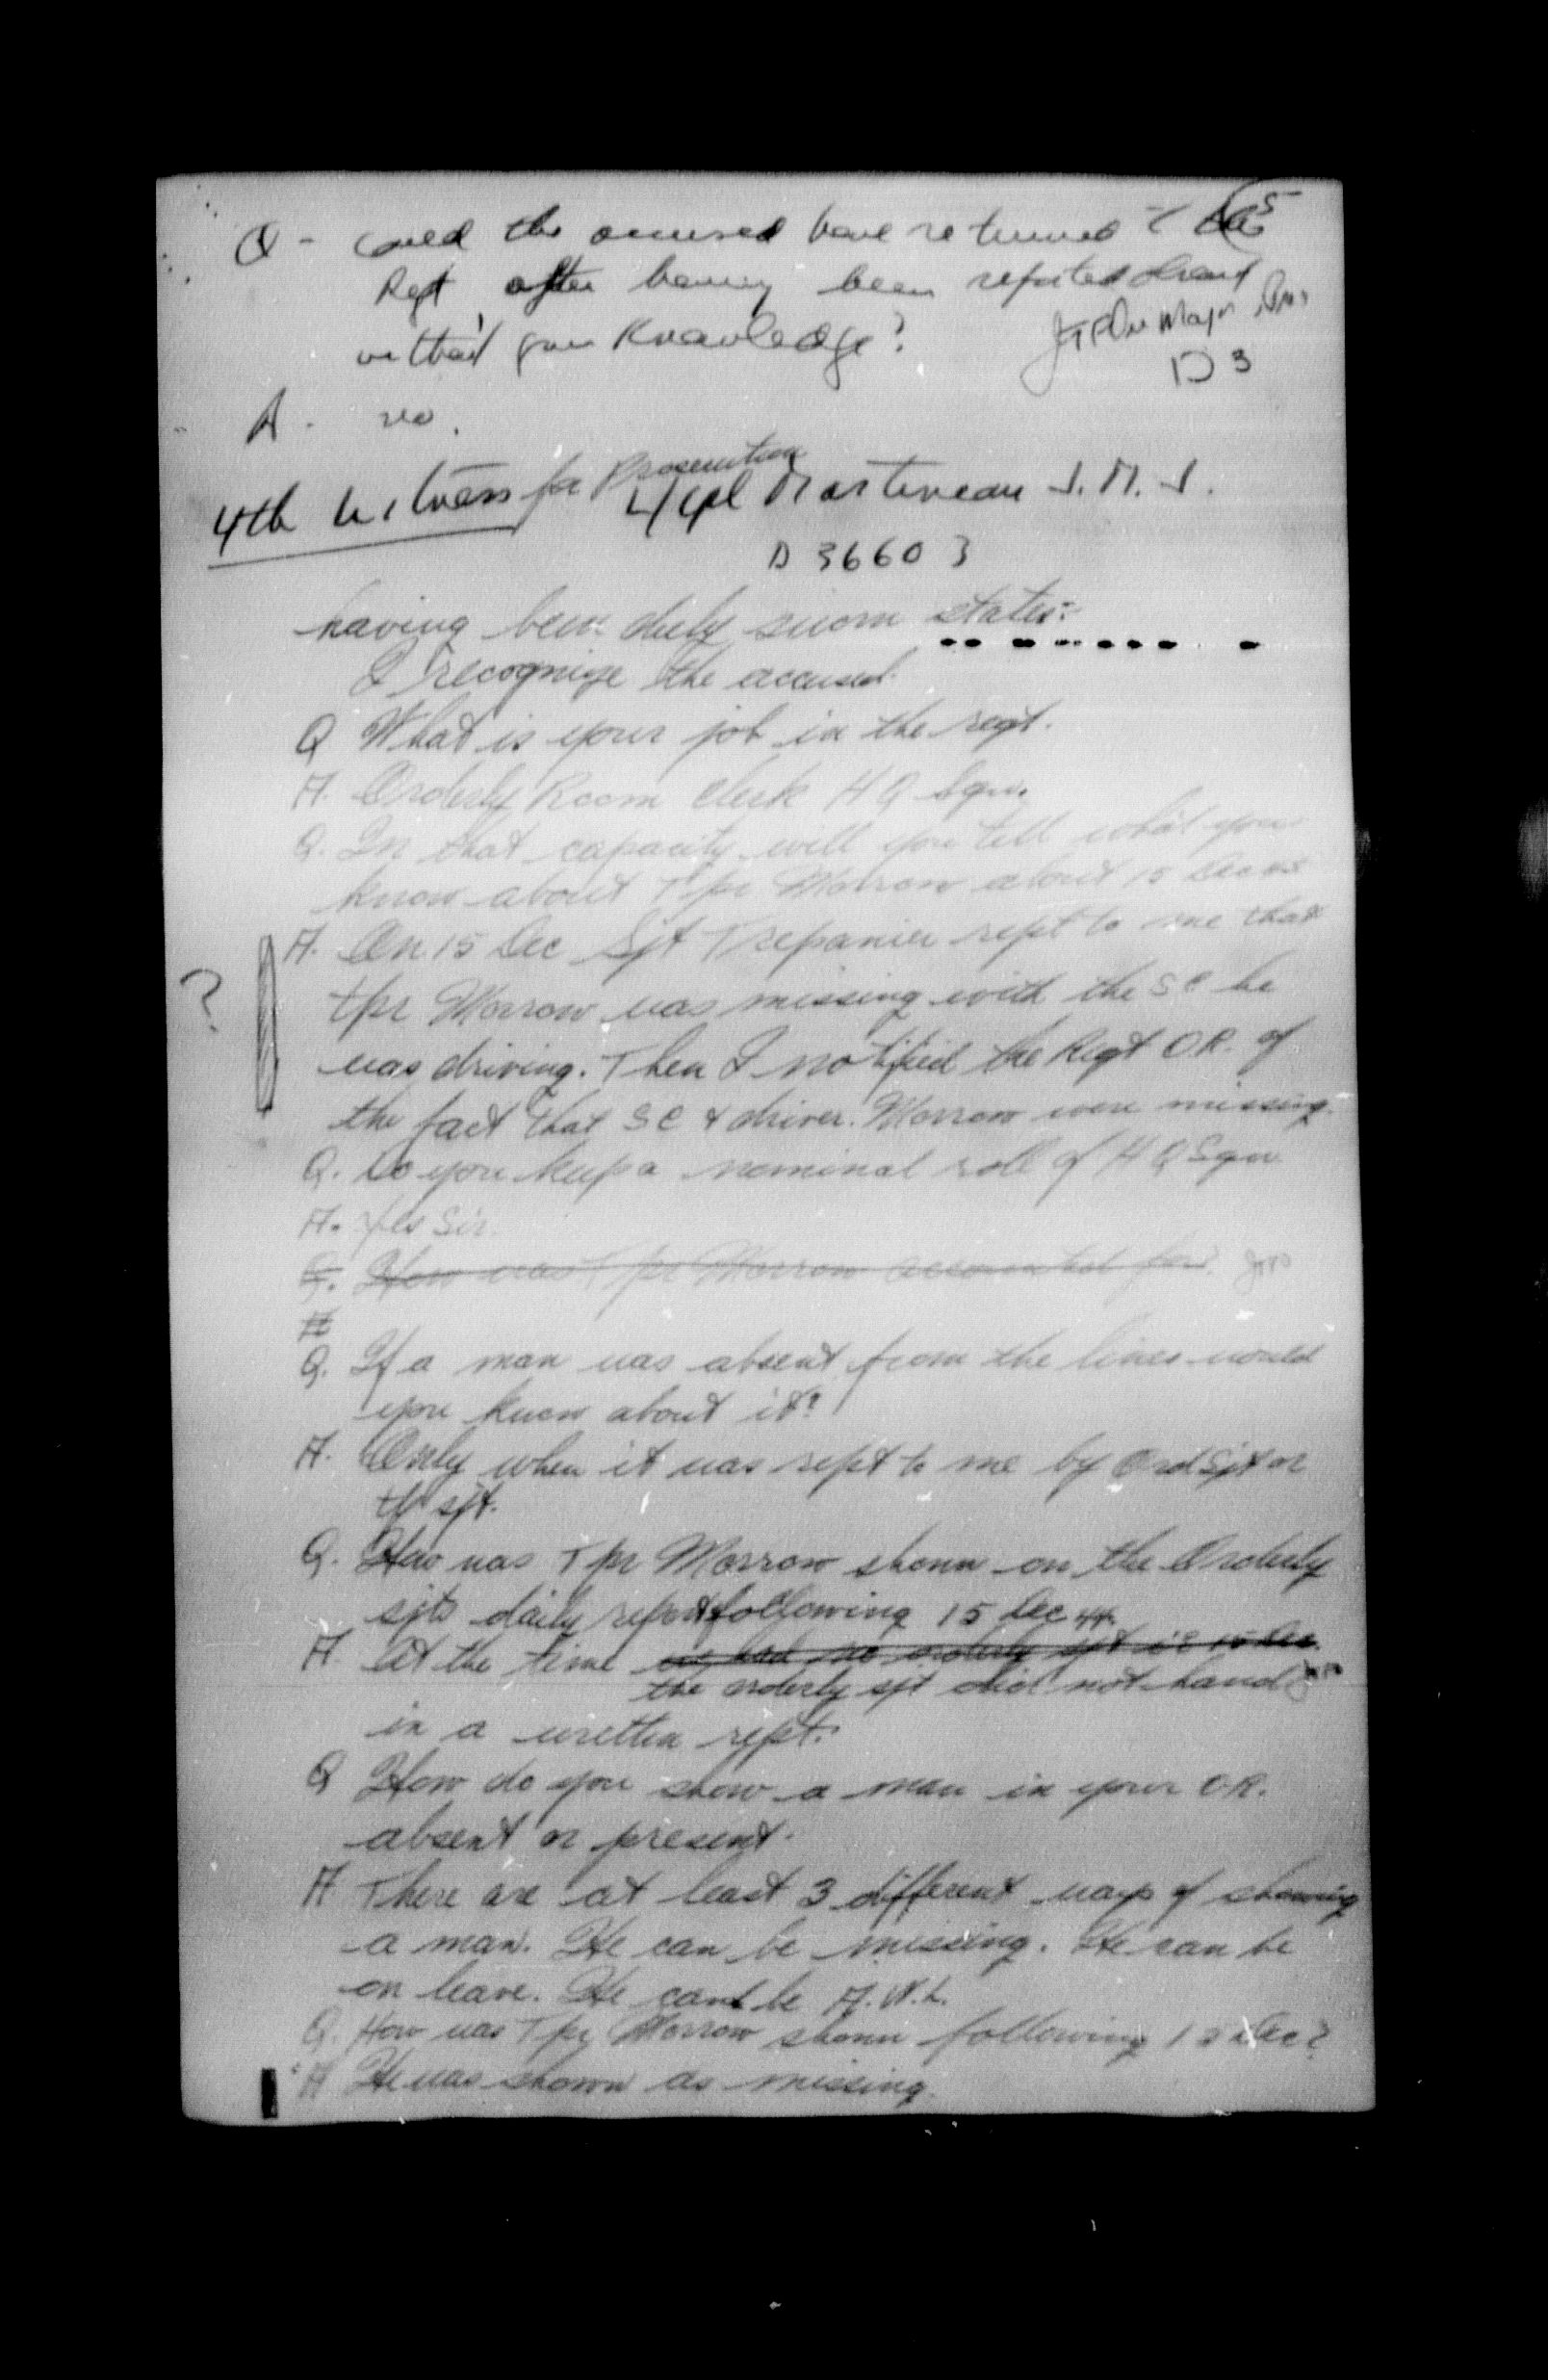 5
Q - Could the accused have returned to the
Regt after having been reported absent
without your Knowledge?
Major
D 3
A. no.
4th Witness for Prosecution L/Cpl Martineau J. M. J.
D 36603
having been duly sworn states:-
I recognize the accused.
Q What is your job in the regt.
A. Orderly Room Clerk H Q Sqn.
Q. In that capacity will you tell what you
know about Tpr Morrow about 15 Dec
A. On 15 Dec Sjt Trepanier rept to me that
?
tpr Morrow was missing with the SC he
was driving. Then I notified the Regt O.R. of
the fact that SC & driver. Morrow were missing.
Q. Do you keep a nominal roll of H Q Sqn
A. Yes Sir.
Q. How was Tpr Morrow accounted for.
A
Q. If a man was absent from the lines would
you know about it?
A. Only when it was rept to me by Ord Sjt or
tp sjt.
Q. How was Tpr Morrow shown on the Orderly
sjts daily report following 15 Dec 44.
A At the time we had no orderly sjt 15 Dec.
the orderly sjt did not hand
in a written rept.
Q How do you show a man in your O.R.
absent or present.
A There are at least 3 different ways of showing
a man. He can be missing. He can be
on leave. He can be A.W.L.
Q. How was Tpr Morrow shown following 15 Dec?
A He was shown as missing.